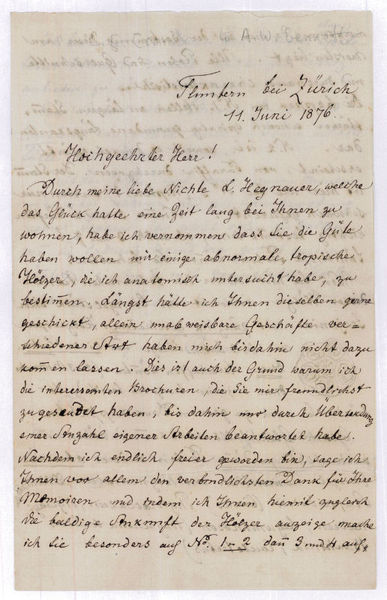 Fluntern bei Zürich
11. Juni 1876.
Hochgeehrter Herr!
Durch meine liebe Nichte L. Hegnauer, welche
das Glück hatte eine Zeit lang bei Ihnen zu
wohnen, habe ich vernommen dass Sie die Güte
haben wollen mir einige abnormale, tropische
Hölzer, die ich anatomisch untersucht habe, zu
bestim̄en. Längst hätte ich Ihnen dieselben gerne
geschickt, allein Geschäfte ver=
schiedener Art haben mich bis dahin nicht dazu
kom̄en lassen. Dies ist auch der Grund warum ich
die interessanten Brochuren, die Sie mir freundlichst
zugesendet haben, bis dahin nur durch Übersendung
einer Anzahl eigener Arbeiten beantwortet habe.
Nachdem ich endlich freier geworden bin, sage ich
Ihnen vor allem den verbindlichsten Dank für Ihre
Memoiren und indem ich Ihnen hiemit zugleich
die baldige Ankunft der Hölzer anzeige mache
ich Sie besonders auf No. 1 u 2 dan̄ 3 und 4 auf=